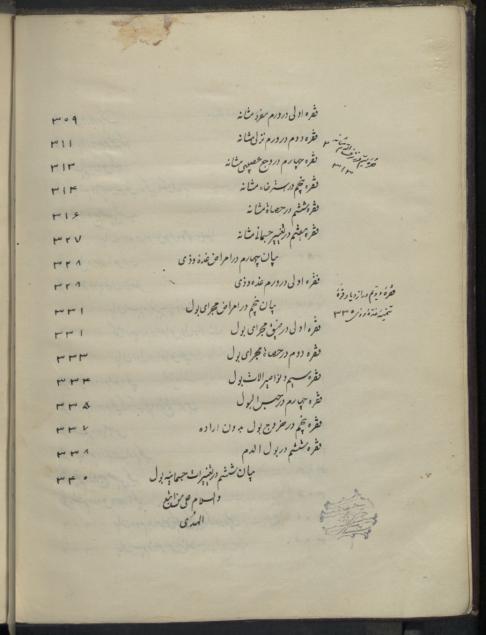 فقره اولی در ورم مفرد مثانه ۳۰۹
فقره دوم در ورم نزلی مثانه ۳۱۱
فقره چهارم در وجع عصبی مثانه ۳۱۳
فقره پنجم در استرخاء مثانه ۳۱۴
فقره ششم در حصاة مثانه ۳۱۶
فقره هفتم در تغییر جسمانی مثانه ۳۲۷
بیان چهارم در امراض غده وذی ۳۲۸
فقره اولی در ورم غده وذی ۳۲۸
بیان پنجم در امراض مجرای بول ۳۳۱
فقره اولی در ضیق مجرای بول ۳۳۱
فقره دوم در حصاة مجرای بول ۳۳۳
فقره سیم در نواصیر آلات بول ۳۳۴
فقره چهارم در حبس البول ۳۳۵
فقره پنجم در خروج بول بدون اراده ۳۳۷
فقره ششم در بول الدم ۳۳۸
بیان ششم در تغییرات جسمانیه بول ۳۴۰
والسلام علی من اتبع
الهدی
فقره
۳۱۳
فقره دویم
۳۳۰